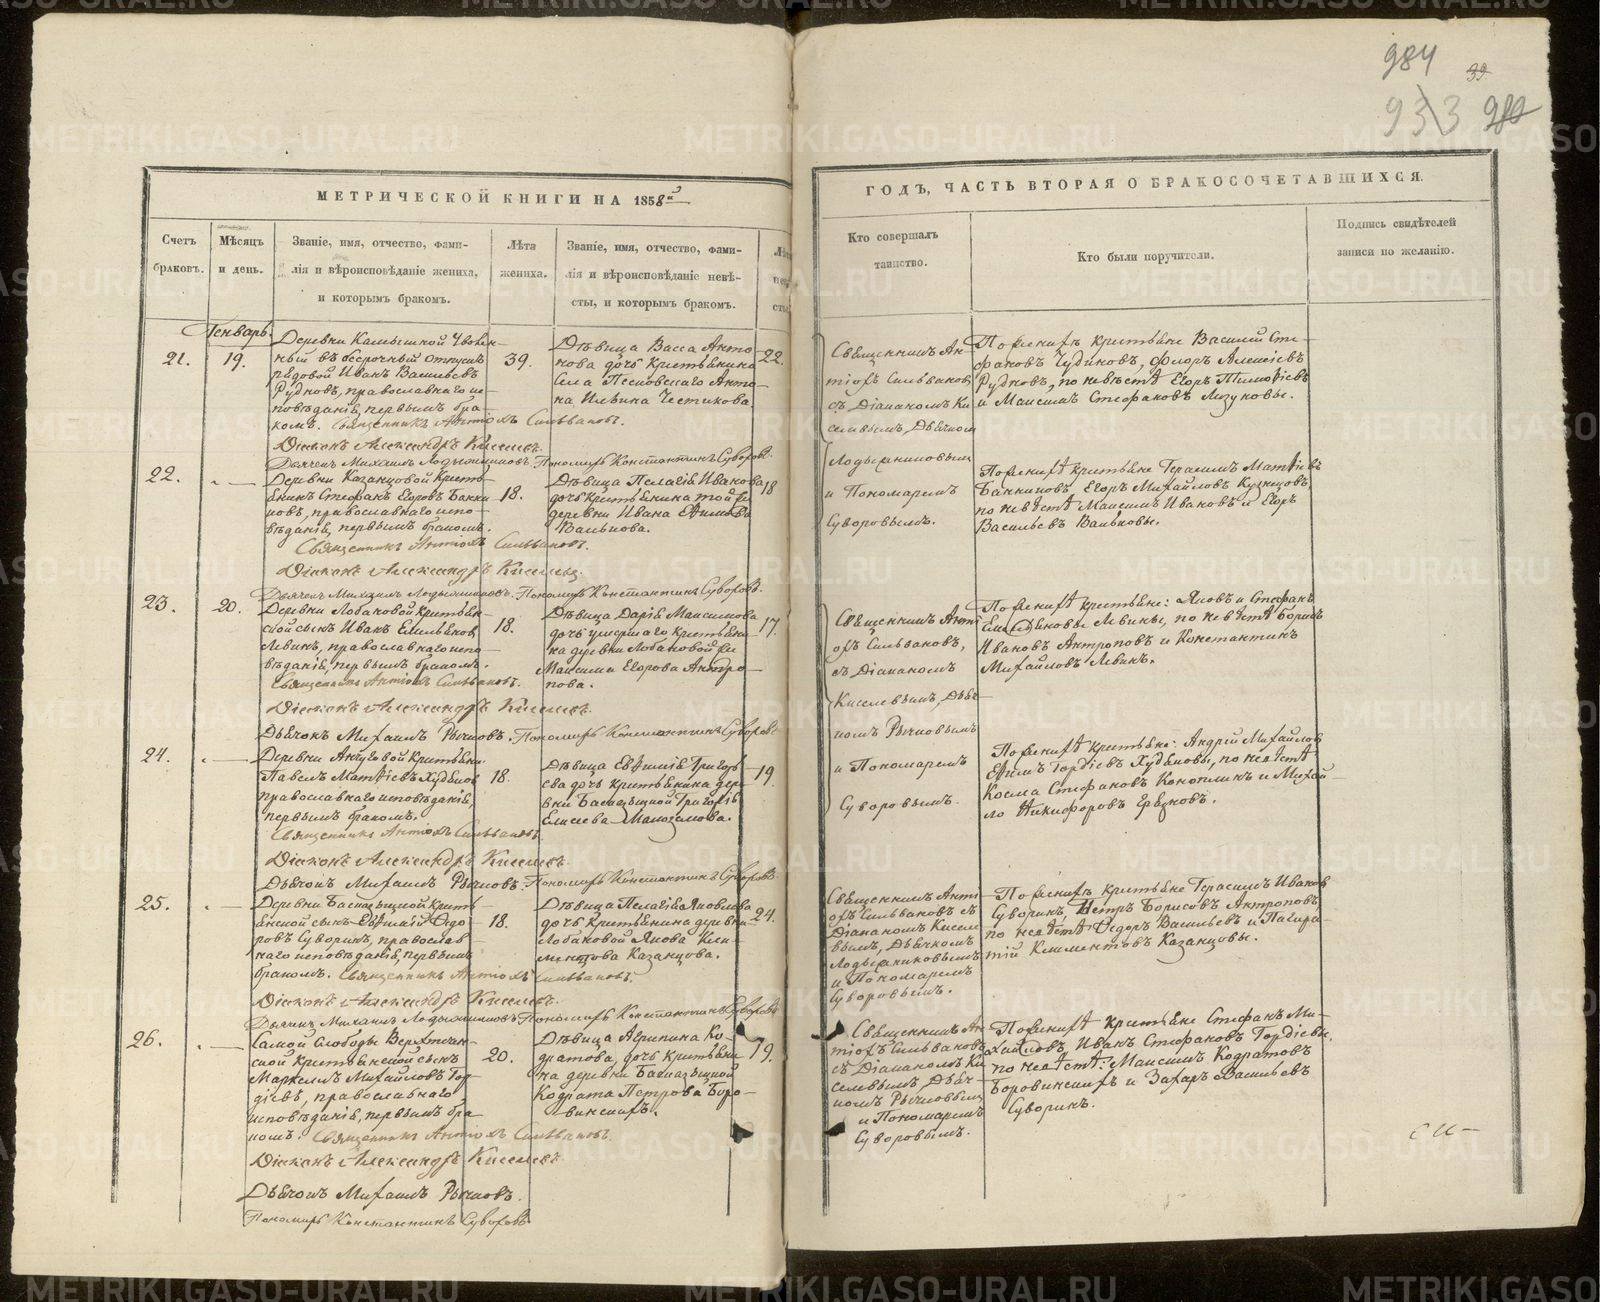 984 39
933 980
МЕТРИЧЕСКОЙ КНИГИ НА 1858й
ГОДЪ, ЧАСТЬ ВТОРАЯ О БРАКОСОЧЕТАВШИХСЯ.
Счетъ
браковъ.
Мѣсяцъ
и день.
Званіе, имя, отчество, фами-
лія и вѣроисповѣданіе жениха,
и которымъ бракомъ.
Лѣта
жениха.
Званіе, имя, отчество, фами-
лія и вѣроисповѣданіе невѣ-
сты, и которымъ бракомъ.
Кто совершалъ
таинство.
Кто были поручители.
Подпись свидѣтелей
записи по желанію.
Генварь.
21.
19.
Деревни Камышной
ный въ безсрочный отпускъ
рядовой Иванъ Васильевъ
Рудновъ, православнаго ис-
повѣданія, первымъ бра-
комъ. Священникъ Антіохъ Сильвановъ.
Діаконъ Александръ Киселевъ.
Дьячекъ Михаилъ Лодыжниковъ. Пономарь Константинъ Суворовъ.
39.
Дѣвица Васса Анто-
нова дочь крестьянина
села Песковскаго Анто-
на Ильина Честикова.
22.
Священникъ Ан-
тіохъ Сильвановъ
съ Діакономъ Ки-
селевымъ, Дьячком
Лодыжниковымъ
и Пономаремъ
Суворовымъ.
По женихѣ крестьяне Василій Сте-
фановъ Чудиновъ, Флоръ Алексіевъ
Рудновъ, по невѣстѣ Егоръ Тимофіевъ
и Максимъ Стефановъ Лизуновы.
22.
Деревни Казанцовой кресть-
янинъ Стефанъ Егоровъ Банни-
ковъ, православнаго испо-
вѣданія, первымъ бракомъ.
Священникъ Антіохъ Сильвановъ.
Діаконъ Александръ Киселевъ.
Дьячекъ Михаилъ Лодыжниковъ. Пономарь Константинъ Суворовъ.
18.
Дѣвица Пелагія Иванова
дочь крестьянина той же
деревни Ивана Ефимова
Валькова.
18
По женихѣ крестьяне Герасимъ Матѳіевъ
Банниковъ, Егоръ Михайловъ Кузнецовъ,
по невѣстѣ Максимъ Ивановъ и Егоръ
Васильевъ Вальковы.
23.
20.
Деревни Лобановой крестьян-
ской сынъ Иванъ Емельяновъ
Левинъ, православнаго испо-
вѣданія, первымъ бракомъ.
Священникъ Антіохъ Сильвановъ.
Діаконъ Александръ Киселевъ.
Дьячокъ Михаилъ Рычковъ. Пономарь Константинъ Суворовъ
18.
Дѣвица Дарія Максимова
дочь умершаго крестьяни-
на деревни Лобановой же
Максима Егорова Антро-
пова.
17.
Священникъ Анті-
охъ Сильвановъ,
съ Діакономъ
Киселевымъ, Дьяч-
комъ Рычковымъ
и Пономаремъ
Суворовымъ.
По женихѣ крестьяне: Яковъ и Стефанъ
Емельяновы Левины, по невѣстѣ Борисъ
Ивановъ Антроповъ и Константинъ
Михайловъ Левинъ.
24.
Павелъ Матѳіевъ Худяковъ
православнаго исповѣданія,
первымъ бракомъ.
Священникъ Антіохъ Сильвановъ.
Діаконъ Александръ Киселевъ.
Дьячокъ Михаилъ Рычковъ. Пономарь Константинъ Суворовъ.
18.
Дѣвица Евфимія Григорь-
ева дочь крестьянина дере-
вни Басказыцкой Григорія
Елисеева
19
По женихѣ крестьяне: Андрей Михайловъ
Ефимъ Гордіевъ Худяковы, по невѣстѣ
Косма Стефановъ Конопкинъ и Михай-
ло Никифоровъ
25.
Деревни Басказыцкой кресть-
янской сынъ Евфимій Ѳедо-
ровъ Суворинъ, православ-
наго исповѣданія, первымъ
бракомъ. Священникъ Антіохъ Сильвановъ.
Діаконъ Александръ Киселевъ.
Дьячекъ Михаилъ Лодыжниковъ Пономарь Константинъ Суворовъ
18.
Дѣвица Пелагія Яковлева
дочь крестьянина деревни
Лобановой Якова Кли-
ментова Казанцова.
24.
Священникъ Анті-
охъ Сильвановъ съ
Діакономъ Кисел-
евымъ, Дьячкомъ
Лодыжниковымъ
и Пономаремъ
Суворовымъ.
По женихѣ крестьяне Герасимъ Ивановъ
Суворинъ, Петръ Борисовъ Антроповъ,
по невѣстѣ Ѳедоръ Васильевъ и Панкра-
тій Климентовъ Казанцовы.
26.
Самой Слободы
ской крестьянской сынъ
Маркелъ Михайловъ Гор-
діевъ, православнаго
исповѣданія, первымъ бра-
комъ. Священникъ Антіохъ Сильвановъ.
Діаконъ Александръ Киселевъ.
Дьячокъ Михаилъ Рычковъ.
Пономарь Константинъ Суворовъ
20.
Дѣвица Агрипина Ко-
дратова, дочь крестьяни-
на деревни Басказыцкой
Кодрата Петрова Боро-
винскихъ.
19.
Священникъ Ан-
тіохъ Сильвановъ
съ Діакономъ Ки-
селевымъ, Дьяч-
комъ Рычковымъ
и Пономаремъ
Суворовымъ.
По женихѣ крестьяне Стефанъ Ми-
хайловъ, Иванъ Стефановъ Гордіевы,
по невѣстѣ: Максимъ Кодратовъ
Боровинскихъ и Захаръ Васильевъ
Суворинъ.
METRIKI.GASO-URAL.RU